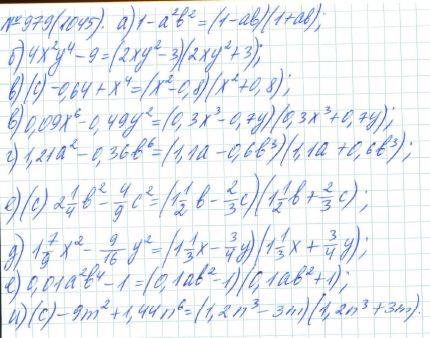 №979(1045). а) 1-a²b²=(1-ab)(1+ab);
б) 4x²y⁴-9=(2xy²-3)(2xy²+3);
в)(с) -0,64+x⁴=(x²-0,8)(x²+0,8);
в) 0,09x⁶-0,49y²=(0,3x³-0,7y)(0,3x³+0,7y);
г) 1,21a²-0,36b⁶=(1,1a-0,6b³)(1,1a+0,6b³);
е)(с) 2 1/4 b² - 4/9 c² = (1 1/2 b - 2/3 c)(1 1/2 b + 2/3 c);
д) 1 7/9 x² - 9/16 y² = (1 1/3 x - 3/4 y)(1 1/3 x + 3/4 y);
е) 0,01a²b⁴-1=(0,1ab²-1)(0,1ab²+1);
и)(с) -9m²+1,44n⁶=(1,2n³-3m)(1,2n³+3m).